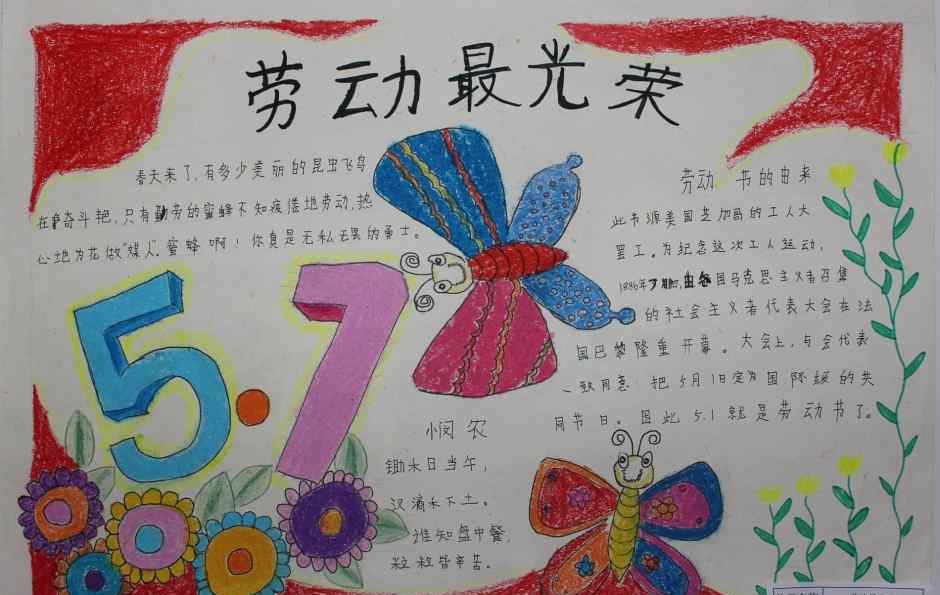 劳动最光荣
春天来了,有多少美丽的昆虫飞鸟
在奋斗耙,只有勤劳的蜜蜂不知疲倦地劳动,热
心地为花做"媒人"。蜜蜂啊!你真是无私无畏的勇士。
5.1
劳动 节的由来
此节源美国芝加哥的工人大
罢工。为纪念这次工人运动,
1886年 国马克思主义者召集
的社会主义者代表大会在法
国巴黎隆重开幕。大会上,与会代表
一致同意:把5月1日定为国际级的共
同节日。因此5.1就是劳动节了。
悯农
锄禾日当午,
汉滴禾下土。
谁知盘中餐,
粒粒皆辛苦。